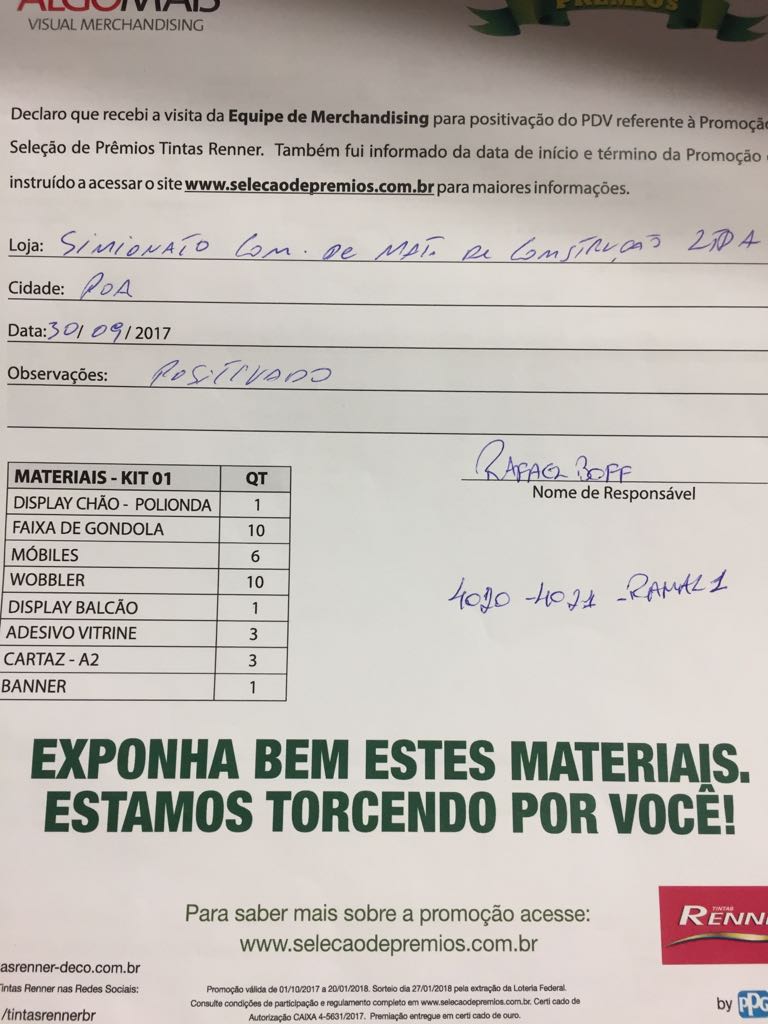 ALGOMAIS
VISUAL MERCHANDISING
PRÊMIOS
Declaro que recebi a visita da Equipe de Merchandising para positivação do PDV referente à Promoção
Seleção de Prêmios Tintas Renner. Também fui informado da data de início e término da Promoção e
instruído a acessar o site www.selecaodepremios.com.br para maiores informações.
Loja: SIMIONATO COM. DE MAT. DE CONSTRUÇÃO LTDA
Cidade: POA
Data: 30/09/2017
Observações: POSITIVADO
RAFAEL BOFF
Nome de Responsável
MATERIAIS - KIT 01 QT
DISPLAY CHÃO - POLIONDA 1
FAIXA DE GONDOLA 10
MÓBILES 6
WOBBLER 10
DISPLAY BALCÃO 1
ADESIVO VITRINE 3
CARTAZ - A2 3
BANNER 1
4020-4021-RAMAL1
EXPONHA BEM ESTES MATERIAIS.
ESTAMOS TORCENDO POR VOCÊ!
Para saber mais sobre a promoção acesse:
www.selecaodepremios.com.br
TINTAS
RENN
asrenner-deco.com.br
intas Renner nas Redes Sociais:
/tintasrennerbr
Promoção válida de 01/10/2017 a 20/01/2018. Sorteio dia 27/01/2018 pela extração da Loteria Federal.
Consulte condições de participação e regulamento completo em www.selecaodepremios.com.br. Certi cado de
Autorização CAIXA 4-5631/2017. Premiação entregue em certi cado de ouro.
by PPG